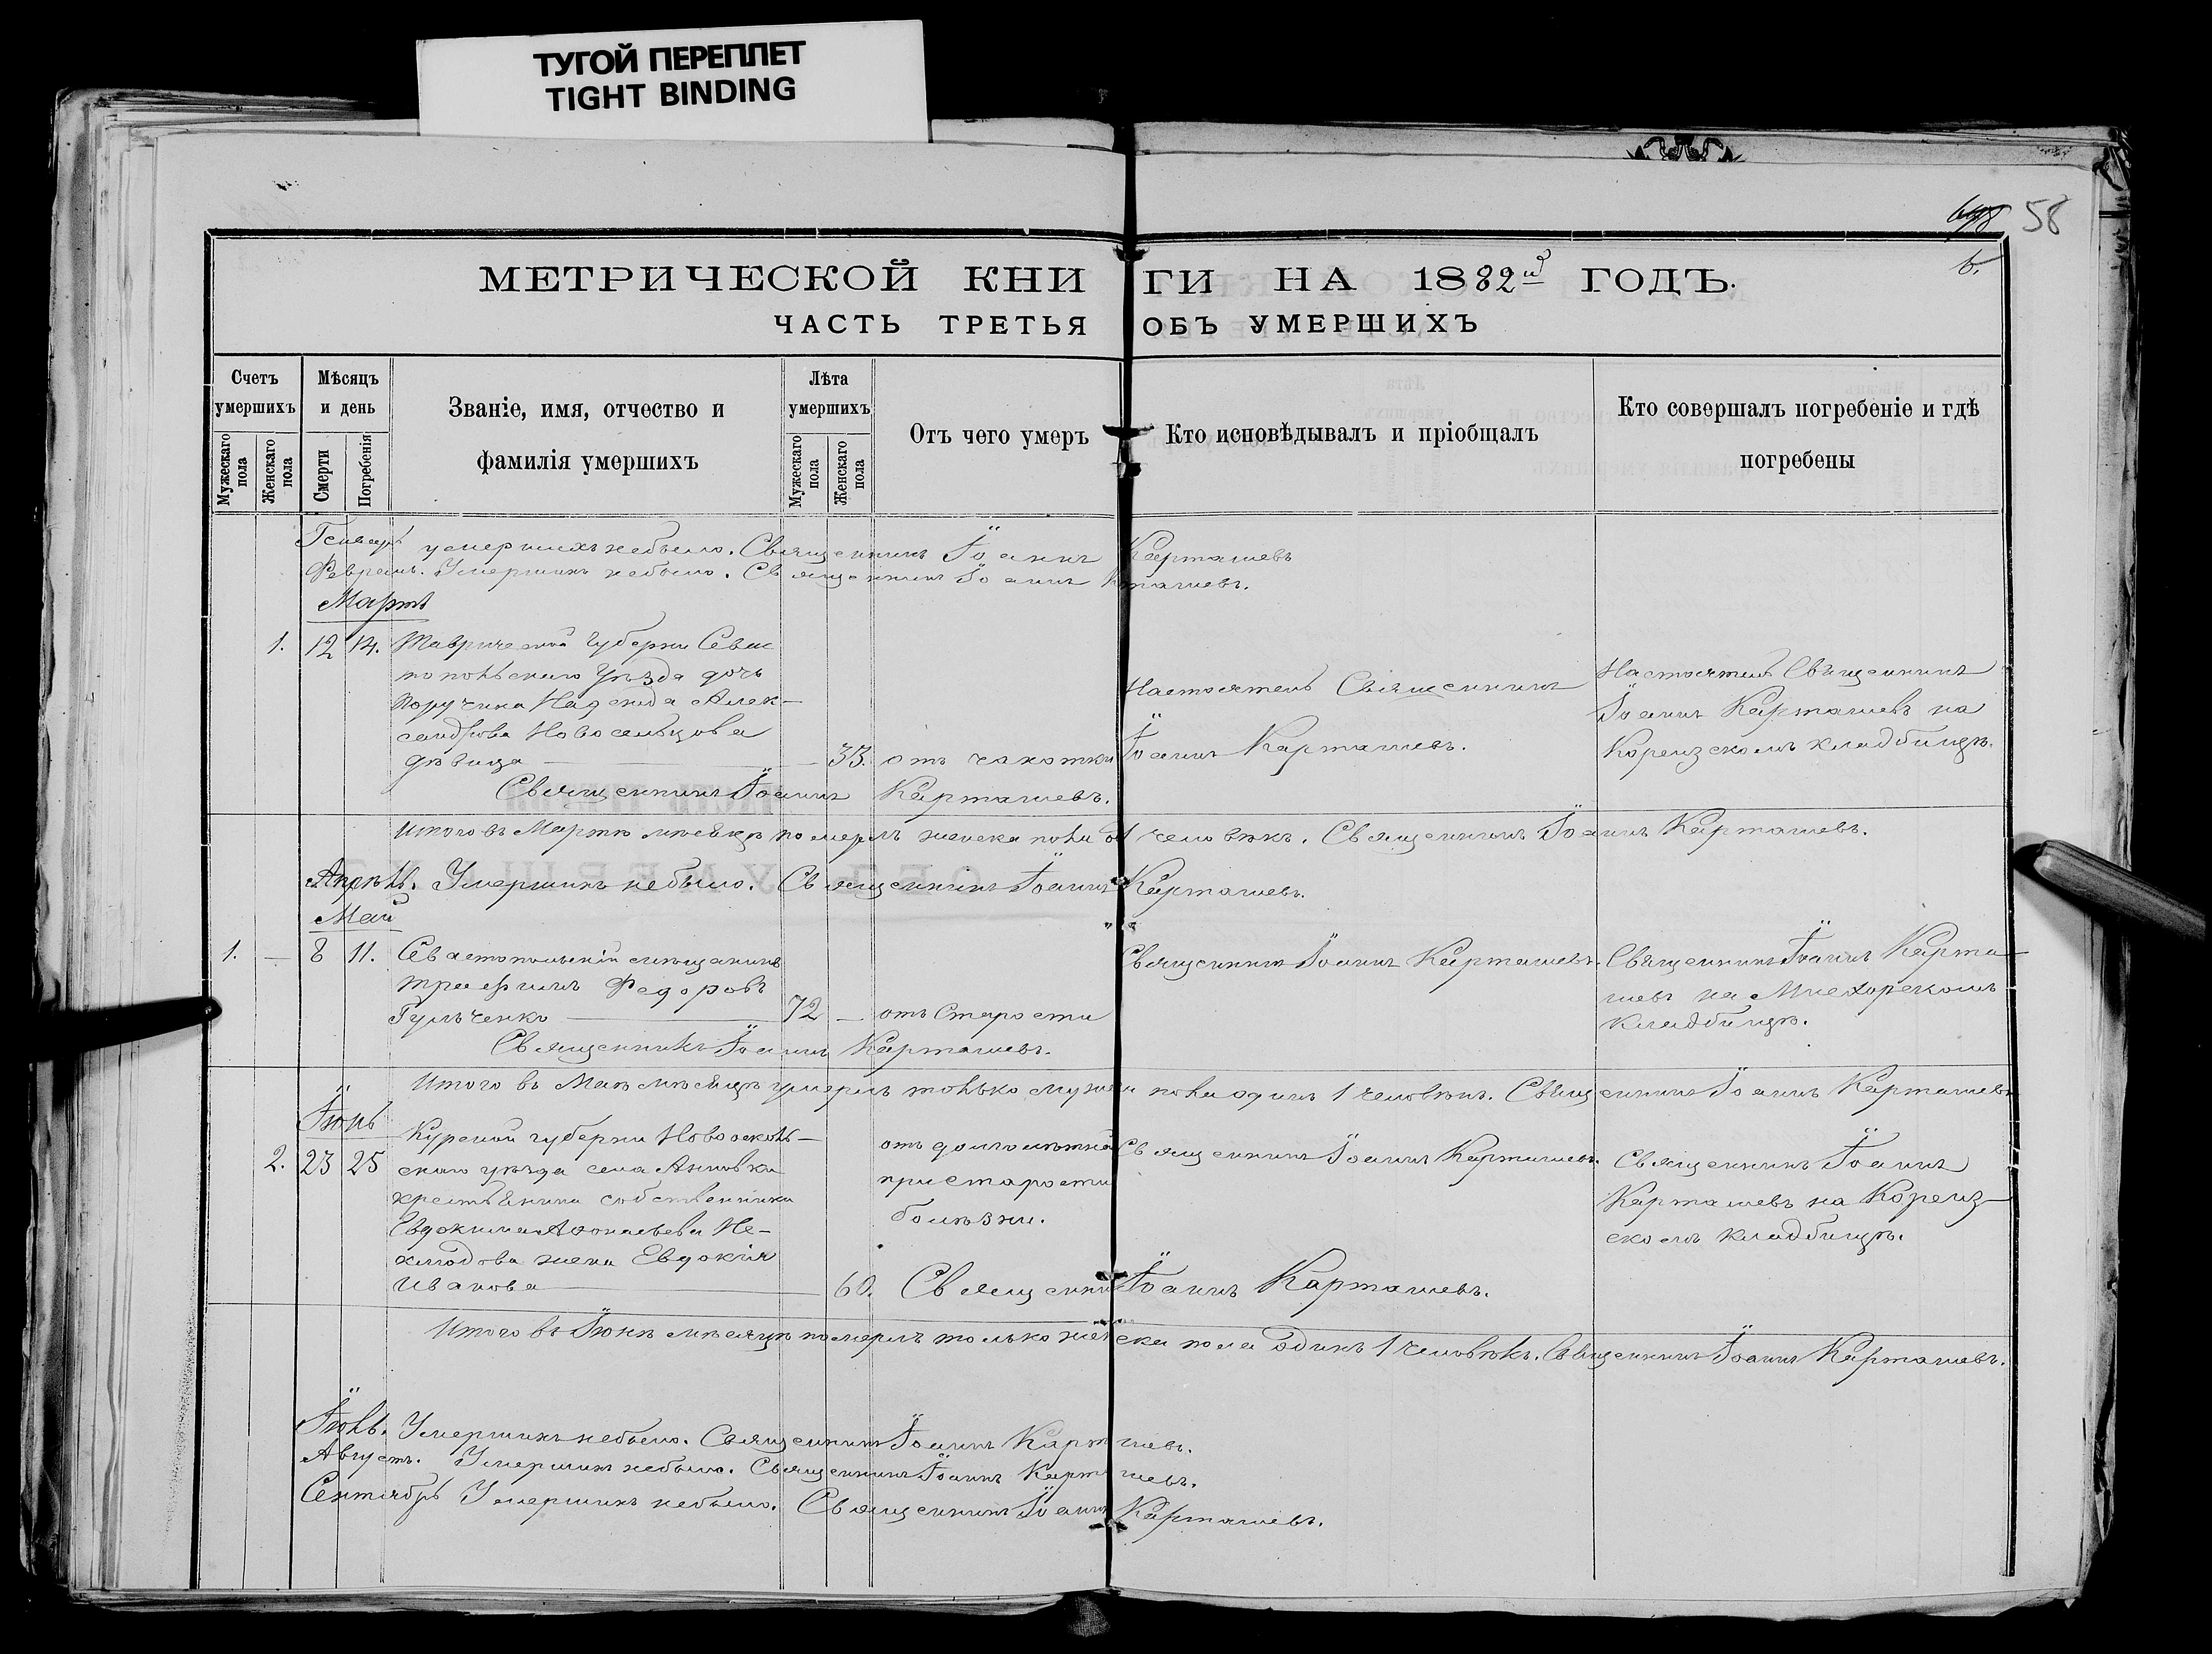 ТУГОЙ ПЕРЕПЛЕТ
TIGHT BINDING
58
6.
МЕТРИЧЕСКОЙ КНИГИ НА 1882й ГОДЪ.
ЧАСТЬ ТРЕТЬЯ ОБЪ УМЕРШИХЪ
Счетъ умершихъ
Мужескаго пола
Женскаго пола
Мѣсяцъ и день
Смерти
Погребенія
Званіе, имя, отчество и
фамилія умершихъ
Лѣта умершихъ
Мужескаго пола
Женскаго пола
Отъ чего умеръ
Кто исповѣдывалъ и пріобщалъ
Кто совершалъ погребеніе и гдѣ
погребены
Генварь умершихъ небыло. Священникъ Іоаннъ Карташевъ
Февраль. Умершихъ небыло. Священникъ Іоаннъ Карташевъ.
Мартъ
1. 12 14. Таврической Губерни Севас
топольскаго Уѣзда дочь
Поручика Надежда Алек-
сандрова Новосельцова
дѣвица — 33. отъ чахотки
Настоятель Священникъ
Іоаннъ Карташевъ.
Настоятель Священникъ
Іоаннъ Карташевъ на
Кореизскомъ кладбищѣ.
Священникъ Іоаннъ Карташевъ.
Итого въ Мартѣ мѣсяцѣ померлъ женска пола 1 человѣкъ. Священникъ Іоаннъ Карташевъ.
Апрѣль. Умершихъ небыло. Священникъ Іоаннъ Карташевъ.
Май
1. — 8 11. Севастопольскій мѣщанинъ
Трифилъ Федоровъ
Гульченко — 72 — отъ Старости
Священникъ Іоаннъ Карташевъ.
Священникъ Іоаннъ Карта-
шевъ на Мисхорскомъ
Кладбищѣ.
Священникъ Іоаннъ Карташевъ.
Итого въ Маѣ мѣсяцѣ умерлъ только мужеска пола одинъ 1 человѣкъ. Священникъ Іоаннъ Карташевъ
Іюнь
2. 23 25 Курской губерни Новоосколь-
скаго уѣзда села Анновки
крестьянина собственника
Евдокима Афонасьева Не-
хлюдова жена Евдокія
Иванова — 60.
отъ долголѣтней
при старости
болѣзни.
Священникъ Іоаннъ Карташевъ.
Священникъ Іоаннъ
Карташевъ на Кореиз-
скомъ кладбищѣ.
Священникъ Іоаннъ Карташевъ.
Итого въ Іюнѣ мѣсяцѣ померлъ только женска пола одинъ 1 человѣкъ. Священникъ Іоаннъ Карташевъ.
Іюль. Умершихъ небыло. Священникъ Іоаннъ Карташевъ.
Августъ. Умершихъ небыло. Священникъ Іоаннъ Карташевъ.
Сентябрь Умершихъ небыло. Священникъ Іоаннъ Карташевъ.